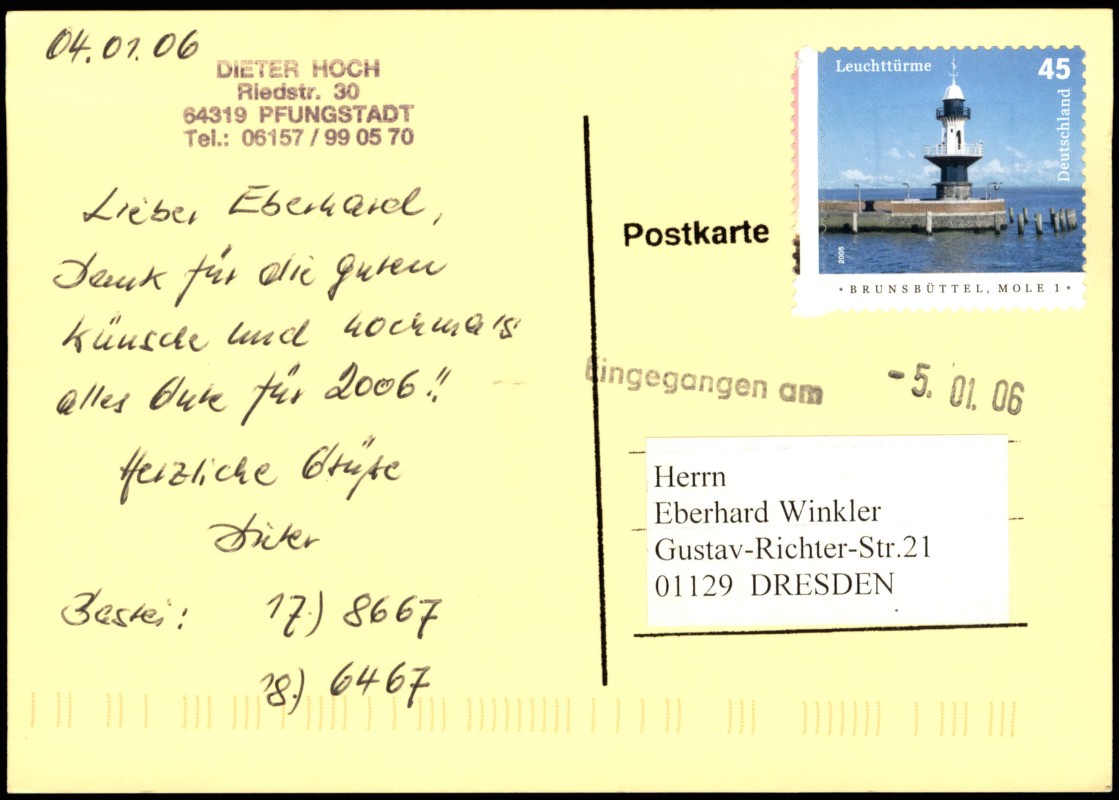 04.01.06
DIETER HOCH
Riedstr. 30
64319 PFUNGSTADT
Tel.: 06157 / 99 05 70
Lieber Eberhard,
Dank für die guten
Wünsche und nochmals
alles Gute für 2006!!
Herzliche Grüße
Dieter
Bastei: 17.) 8667
18.) 6467
Leuchttürme
45
Deutschland
2005
* BRUNSBÜTTEL, MOLE 1 *
Postkarte
Eingegangen am -5. 01. 06
Herrn
Eberhard Winkler
Gustav-Richter-Str.21
01129 DRESDEN